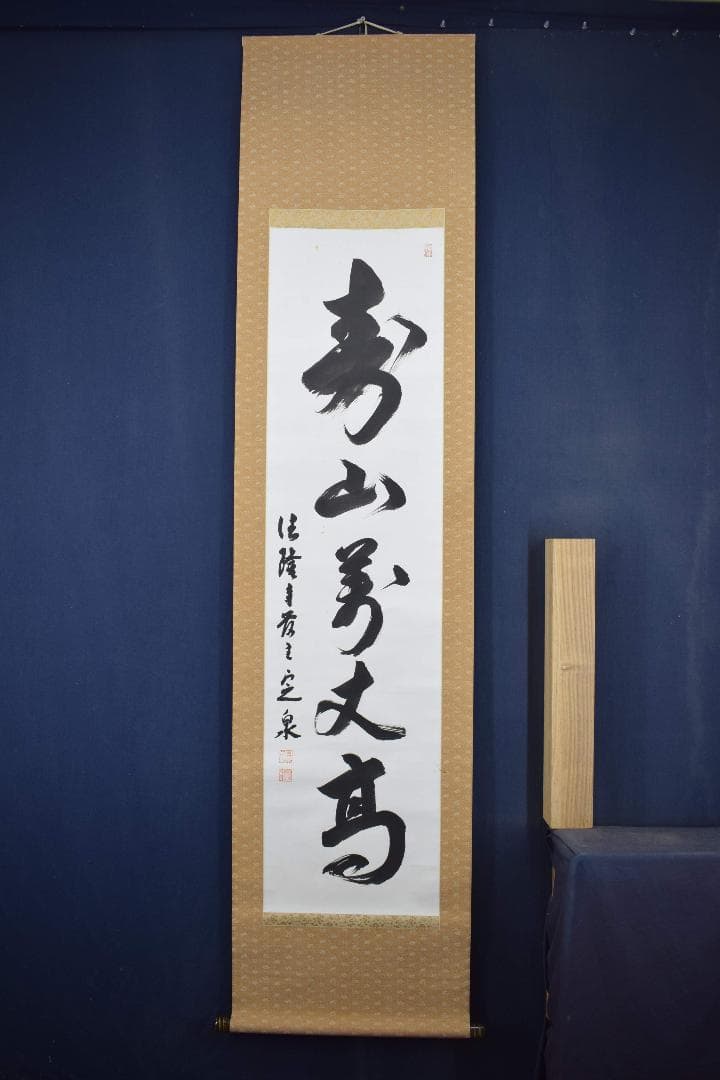 寿山萬丈高
法隆寺管主定泉